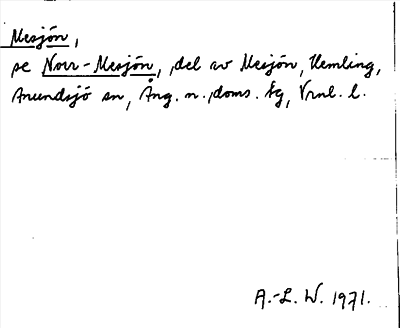 Mesjön,
se Norr-Mesjön, del av Mesjön, Kemling,
Anundsjö sn, Ång. n., doms. fg, Vrnl. l.
A.-L. W. 1971.